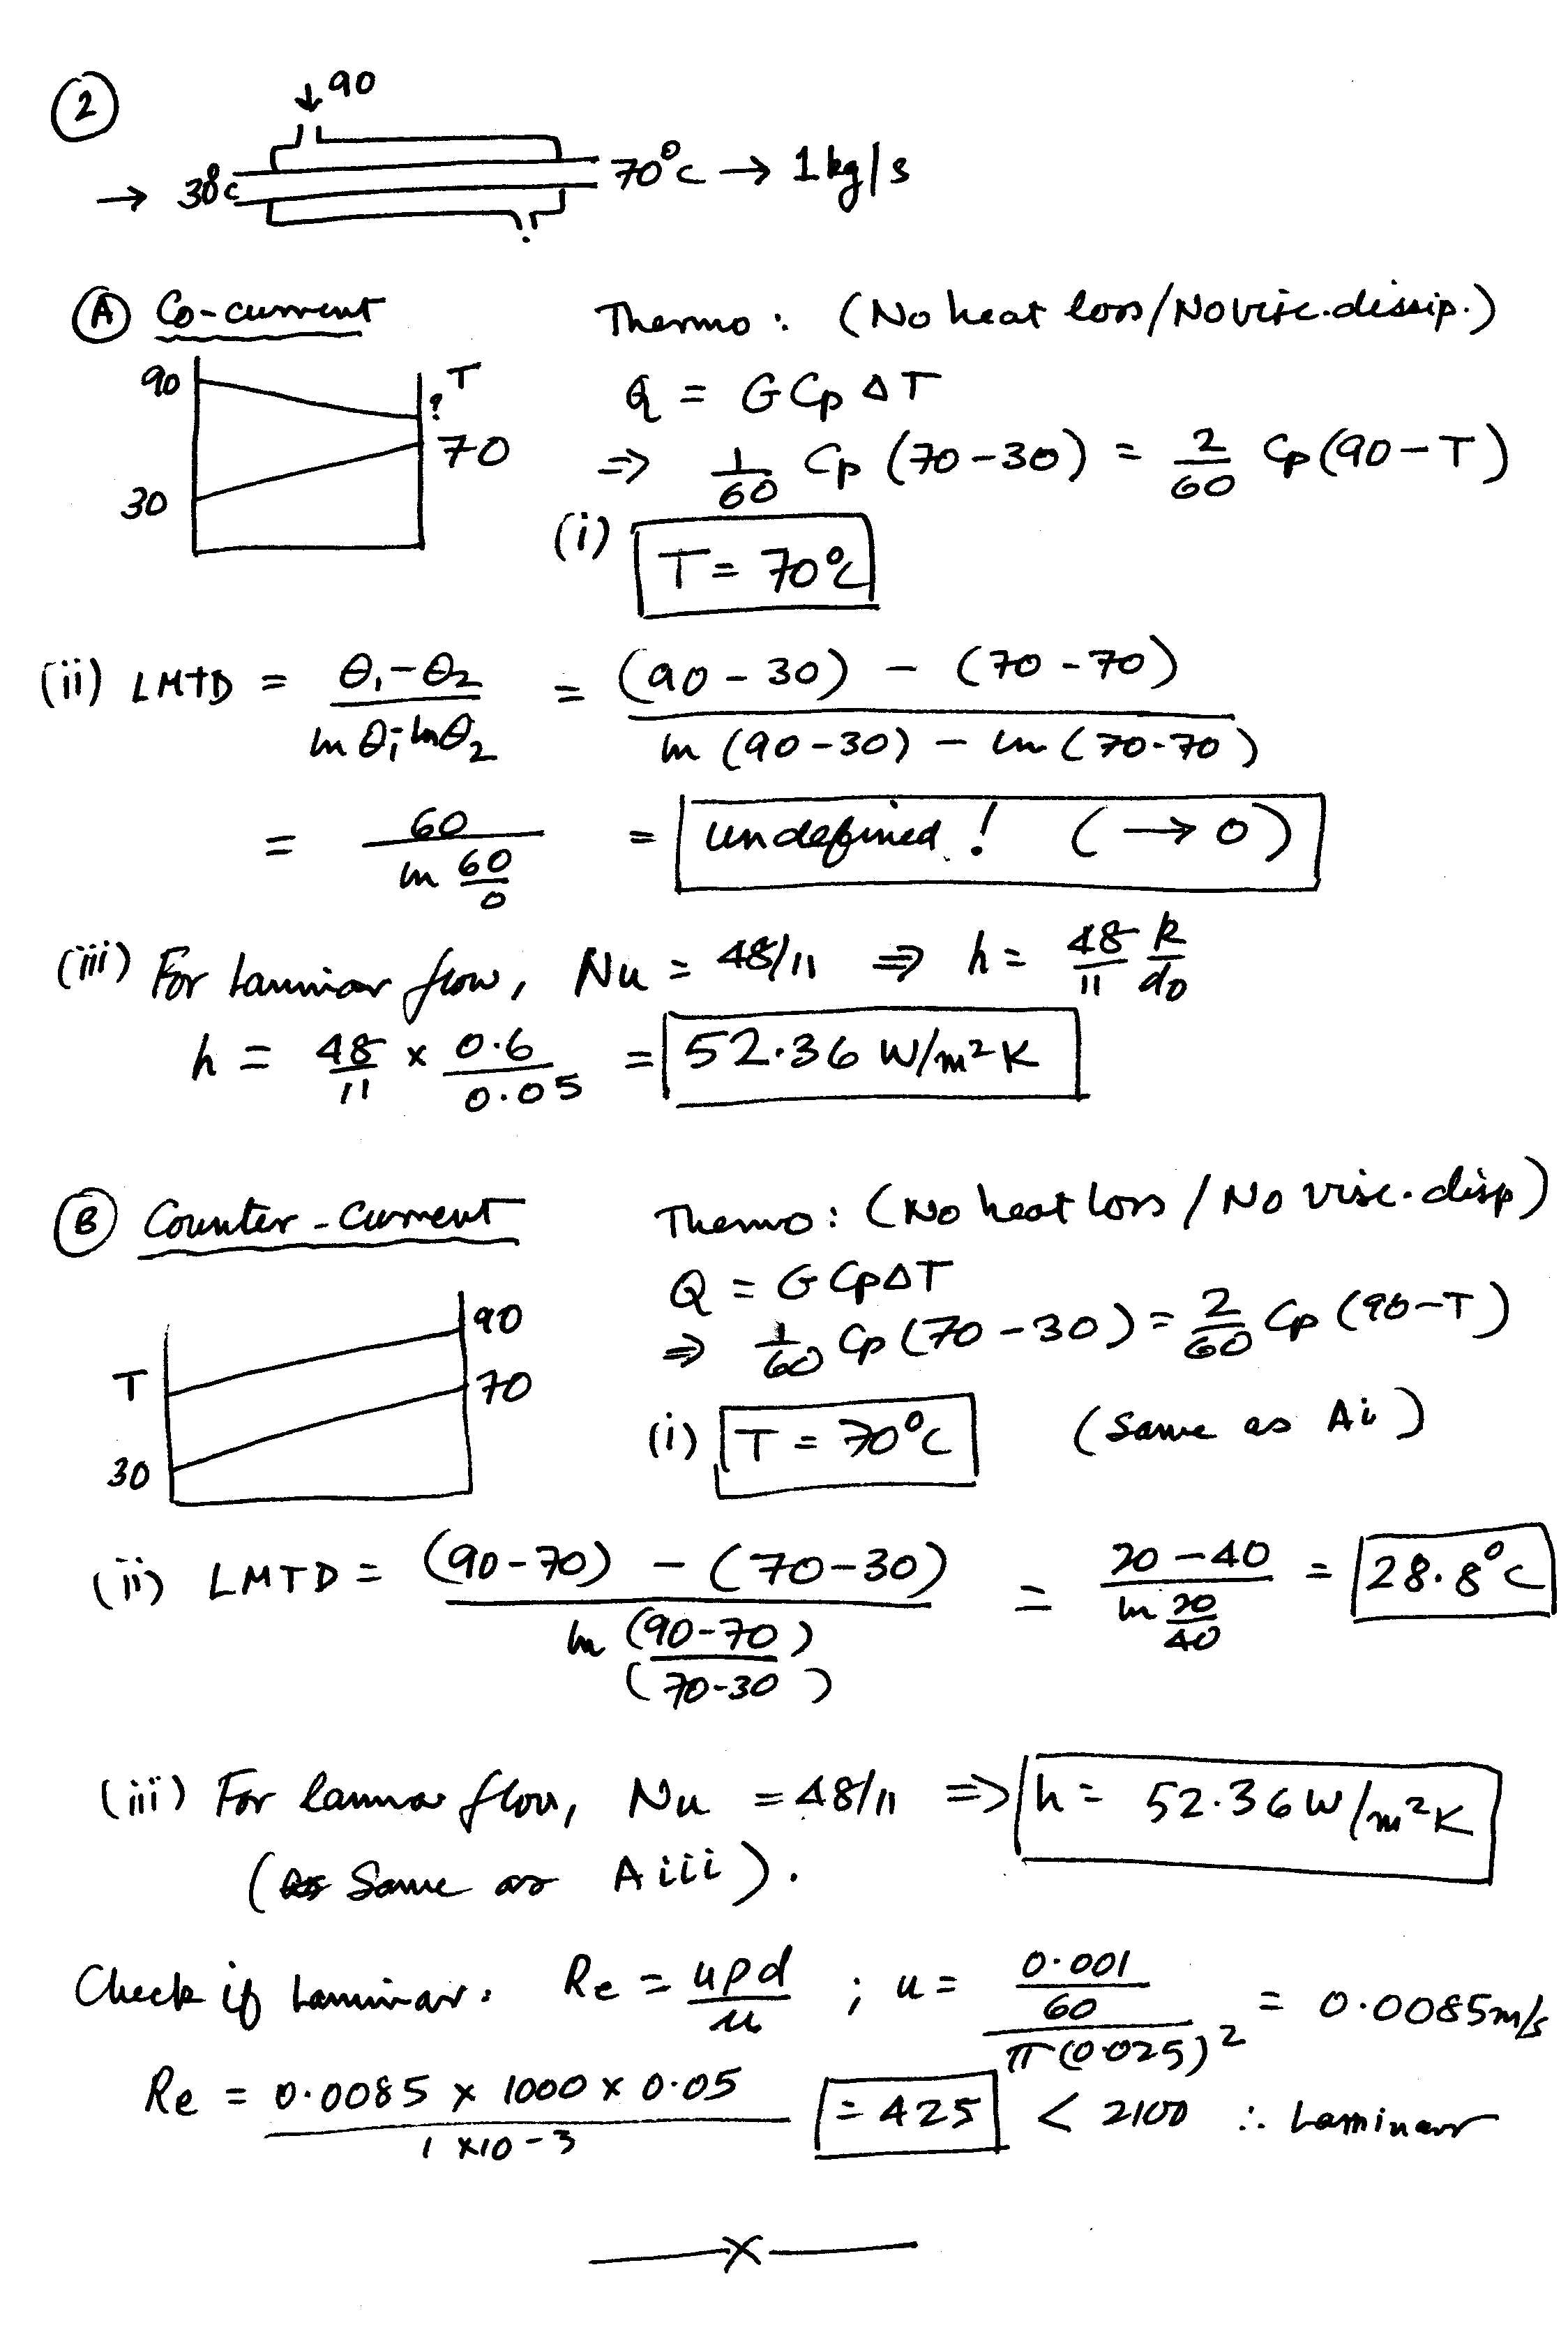 ②
↓ 90
→ 30°c 70°c → 1kg/s
?
Ⓐ Co-current Thermo : (No heat loss/No visc. dissip.)
90 T
? Q = G Cp ΔT
70 ⇒ 1/60 Cp (70-30) = 2/60 Cp (90-T)
30
(i) T = 70°c
(ii) LMTD = θ₁-θ₂ / ln θ₁-lnθ₂ = (90-30) - (70-70) / ln (90-30) - ln (70-70)
= 60 / ln 60/0 = undefined! (→ 0)
(iii) For Laminar flow, Nu = 48/11 ⇒ h = 48/11 k/do
h = 48/11 x 0.6/0.05 = 52.36 W/m²K
Ⓑ Counter-current Thermo : (No heat loss / No visc. disp)
Q = G CpΔT
90 ⇒ 1/60 Cp (70-30) = 2/60 Cp (90-T)
T 70
30 (i) T = 70°c (Same as Ai)
(ii) LMTD = (90-70) - (70-30) / ln (90-70)/(70-30) = 20-40 / ln 20/40 = 28.8°c
(iii) For lamina flow, Nu = 48/11 ⇒ h = 52.36 W/m²K
(Same as A iii).
Check if Laminar. Re = uρd/μ ; u = 0.001/60 / π(0.025)² = 0.0085m/s
Re = 0.0085 x 1000 x 0.05 / 1 x10-3 = 425 < 2100 ∴ Laminar
—x—